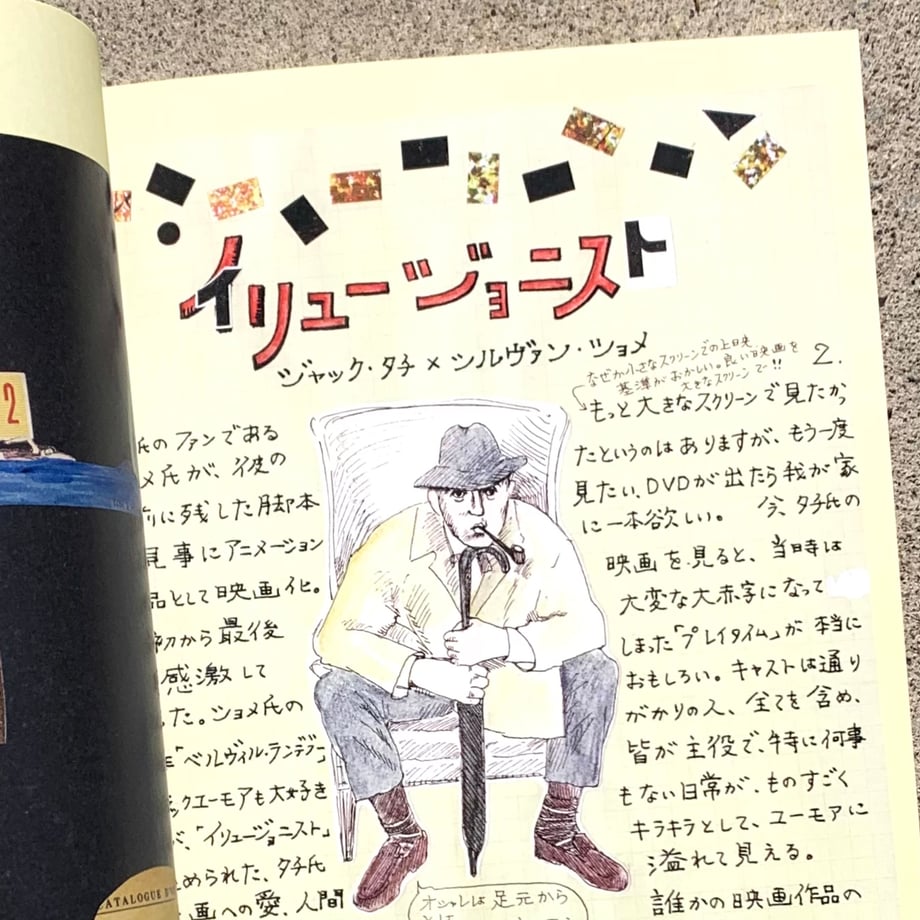 イリュージョニスト
ジャック・タチ × シルヴァン・ショメ
氏のファンである
メ氏が、彼の
前に残した脚本
見事にアニメーション
品として映画化。
初から最後
感激して
した。ショメ氏の
「ベルヴィル・ランデブー
ックユーモアも大好き
が、「イリュージョニスト」
められた、タチ氏
画への愛、人間
なぜか小さなスクリーンでの上映
基準がおかしい。良い映画を
大きなスクリーンで!!
2.
もっと大きなスクリーンで見たかっ
たというのはありますが、もう一度
見たい、DVDが出たら我が家
に一本欲しい。 今、タチ氏の
映画を見ると、当時は
大変な大赤字になって
しまった「プレイタイム」が本当に
おもしろい。キャストは通り
がかりの人、全てを含め、
皆が主役で、特に何事
もない日常が、ものすごく
キラキラとして、ユーモアに
溢れて見える。
誰かの映画作品の
オシャレは足元から
2
CATALOGUE